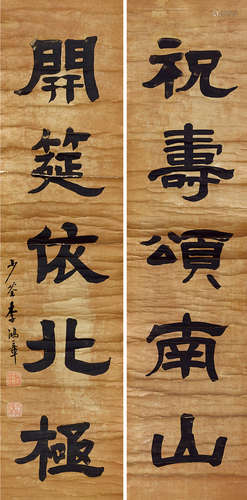 祝壽頌南山
開筵依北極
少荃李鴻章